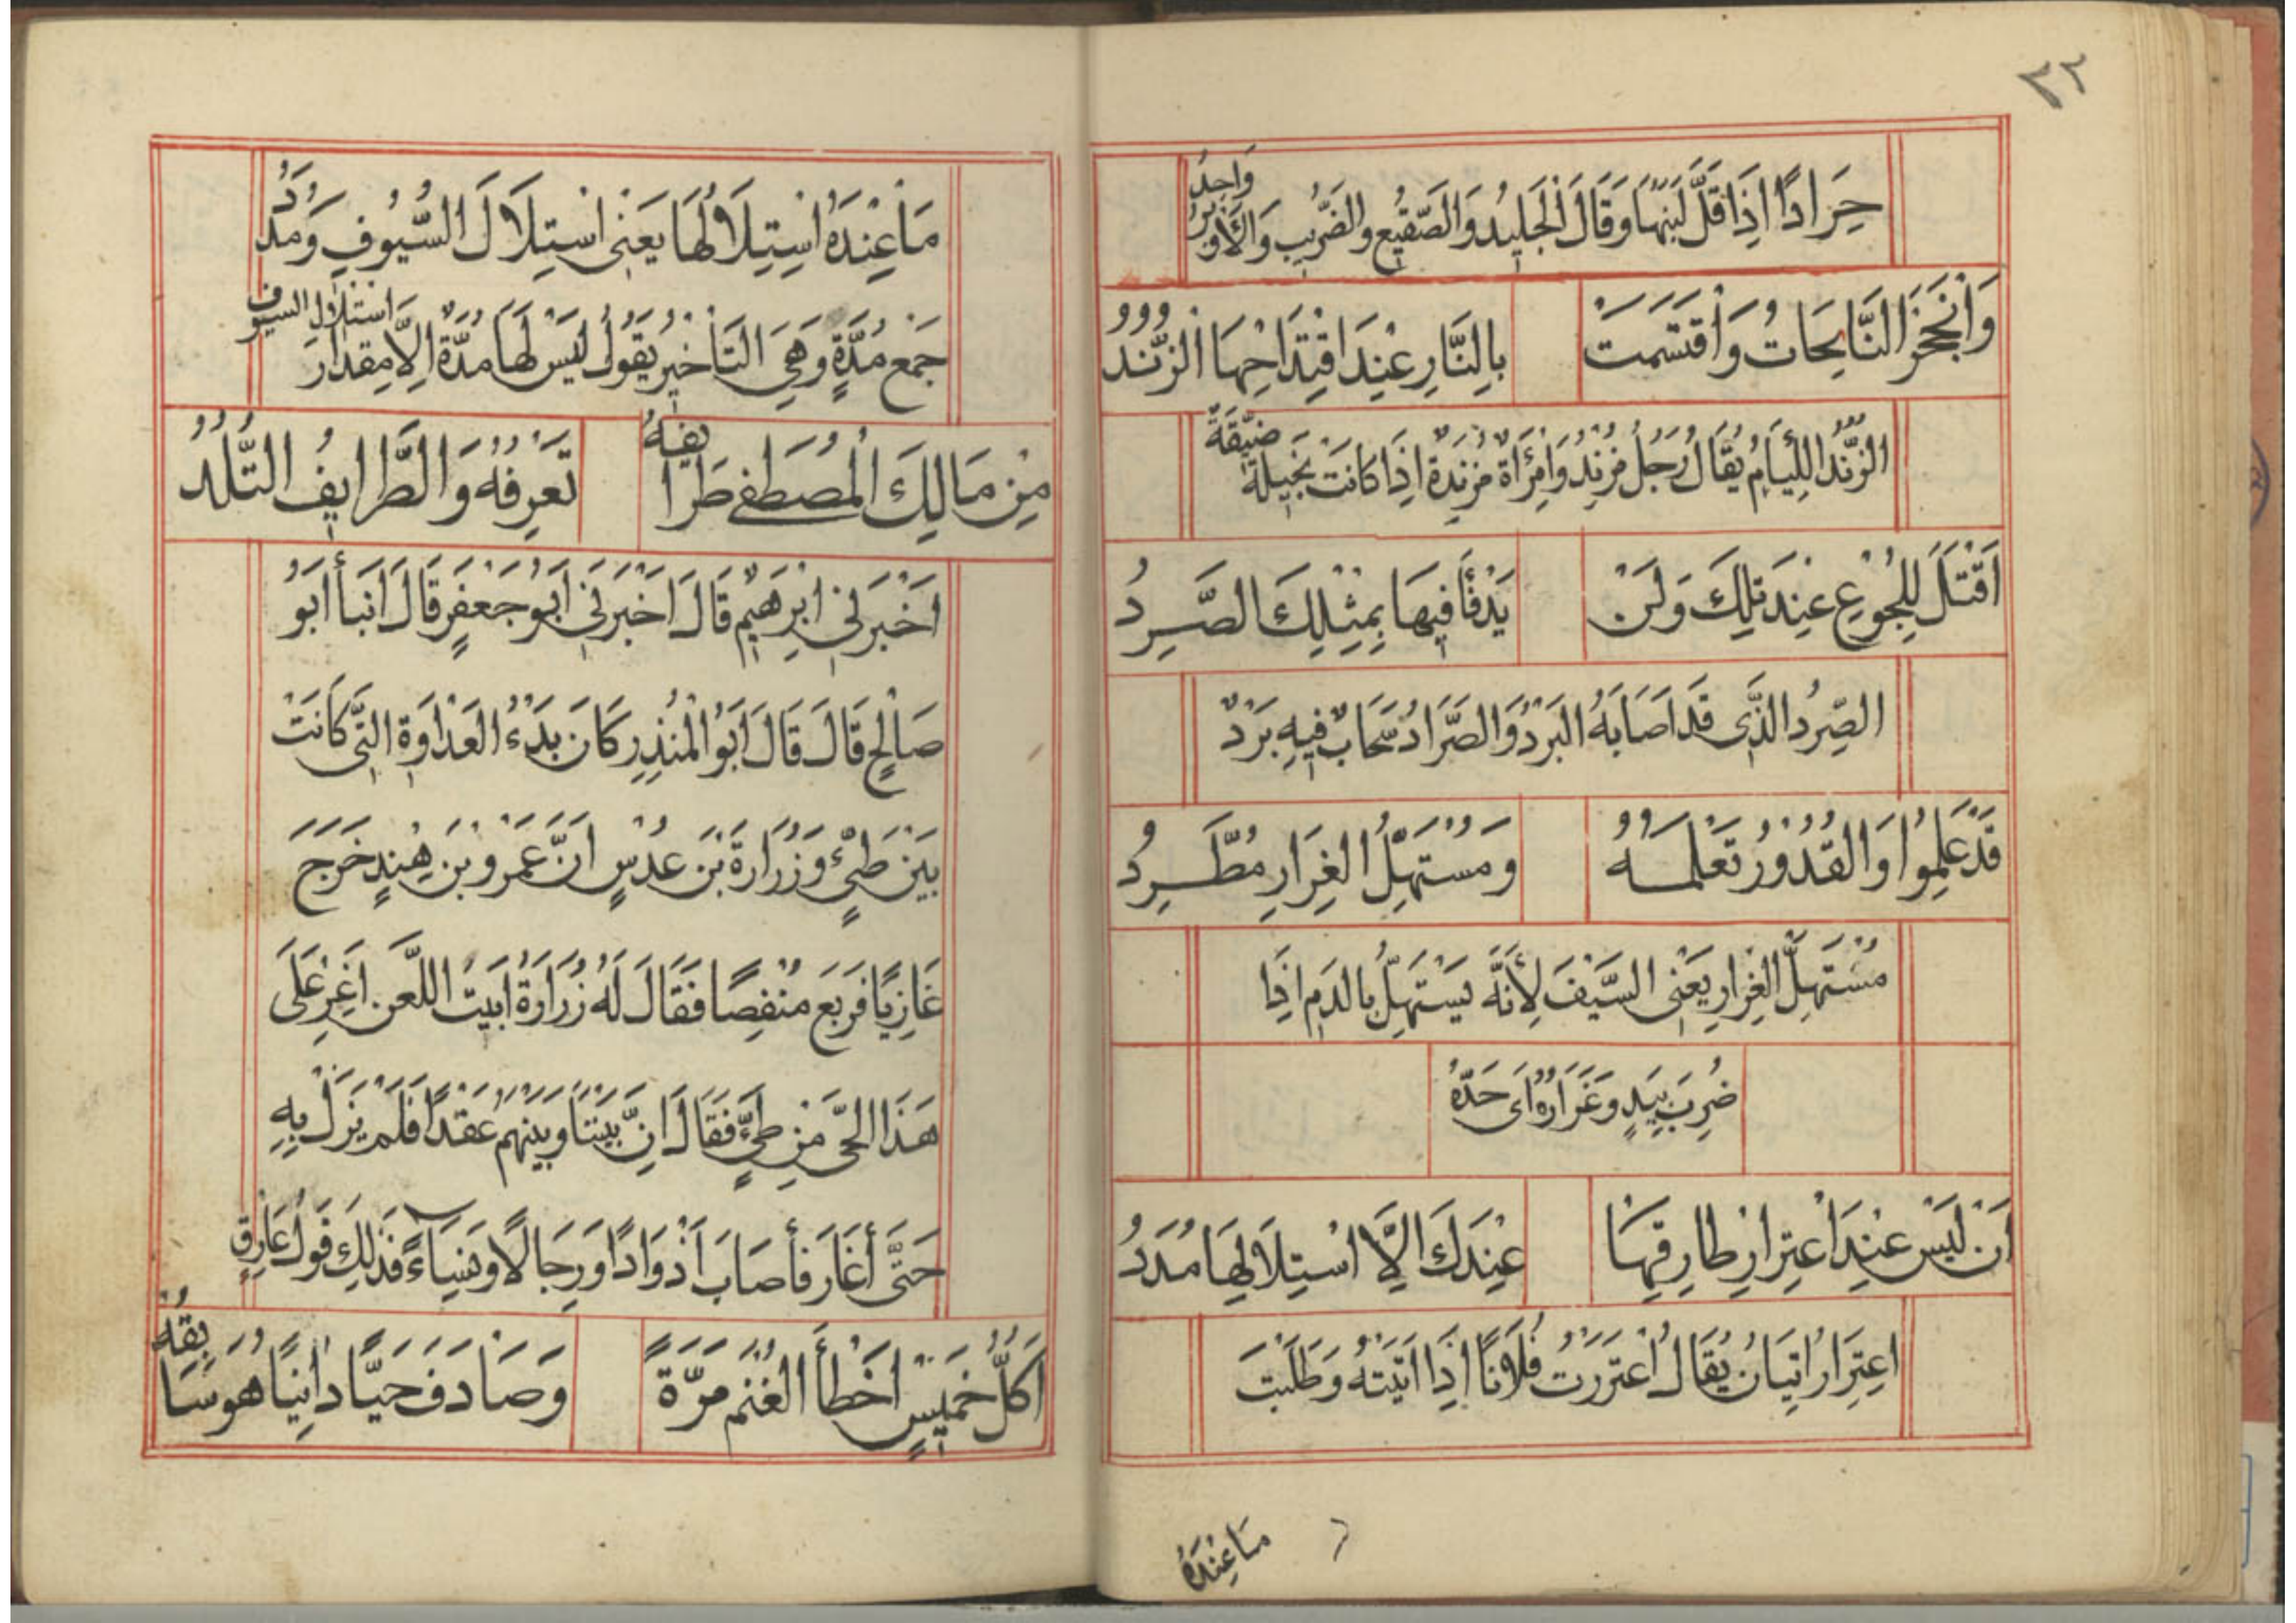 ٣٢
حِرَادًا اِذَا قَلَّ لَبَنُهَا وَقَالَ الْجَلِيْدُ وَالصَّقِيْعُ وَالضَّرِيْبُ وَالْأَ وَاحِدٌ
وَانْجَحَرَ النَّابِحَاتُ وَاقْتَسَمَتْ بِالنَّارِ عِنْدَ اقْتِدَاحِهَا الزُّنُدُ
الزُّنُدُ اللِّيَامُ يُقَالُ رَجُلٌ مُزَنَّدٌ وَامْرَأَةٌ مُزَنَّدَةٌ اِذَا كَانَتْ بَخِيْلَةً ضَيِّقَةً
اَقْتَلَ لِلْجُوْعِ عِنْدَ تِلْكَ وَلَنْ يَدْفَأَ فِيْهَا بِمِثْلِكَ الصَّرِدُ
الصَّرِدُ الَّذِى قَدْ اَصَابَهُ الْبَرْدُ وَالصُّرَّادُ سَحَابٌ فِيْهِ بَرْدٌ
قَدْ عَلِمُوْا وَالْقُدُوْرُ تَعْلَمُهُ وَمُسْتَهِلُّ الْغِرَارِ مُطَّرِدُ
مُسْتَهِلُّ الْغِرَارِ يَعْنِى السَّيْفَ لِأَنَّهُ يَسْتَهِلُّ بِالدَّمِ اِذَا
ضُرِبَ بِيَدٍ وَغَرَارُهُ اَىْ حَدُّهُ
اَنْ لَيْسَ عِنْدَ اعْتِرَارِ طَارِقِهَا عِنْدَكَ اِلَّا اسْتِلَالِهَا مُدَدُ
اعْتِرَارُ اِتْيَانُ يُقَالُ اعْتَرَرْتُ فُلَانًا اِذَا اَتَيْتَهُ وَطَلَبْتَ
مَاعِنْدَهُ
مَا عِنْدَهُ اسْتِلَالُهَا يَعْنِى اسْتِلَالَ السُّيُوْفِ وَمُدَدُ
جَمْعُ مُدَّةٍ وَهِىَ التَّأْخِيْرُ يَقُوْلُ لَيْسَ لَهَا مُدَّةٌ اِلَّا مِقْدَارَ اسْتِلَالِ السيوف
مِنْ مَالِكَ الْمُصْطَفٰى طَرَائِفَهُ تَعْرِفُهُ وَالطَّرَايِفُ التُّلُدُ
اَخْبَرَنِىْ اِبْرٰهِيْمُ قَالَ اَخْبَرَنِىْ اَبُوْ جَعْفَرٍ قَالَ اَنْبَأَ اَبُوْ
صَالِحٍ قَالَ قَالَ اَبُوْ الْمُنْذِرِ كَانَ بَدْءُ الْعَدَاوَةِ الَّتِىْ كَانَتْ
بَيْنَ طَيِّئٍ وَزُرَارَةَ بْنِ عُدُسٍ اَنَّ عَمْرَو بْنَ هِنْدٍ خَرَجَ
غَازِيًا فَرَبَعَ مُنْفِضًا فَقَالَ لَهُ زُرَارَةُ اَبَيْتَ اللَّعْنَ اَغِرْ عَلَى
هَذَا الْحَىِّ مِنْ طَيِّئٍ فَقَالَ اِنَّ بَيْنَنَا وَبَيْنَهُمْ عَقْدًا فَلَمْ يَزَلْ بِهِ
حَتَّى أَغَارَ فَأَصَابَ اَذْوَادًا وَرِجَالًا وَنِسَاءً فَذَلِكَ قَوْلُ عَارِقٍ
اَكُلُّ خَمِيْسٍ اَخْطَأَ الْغُنْمَ مَرَّةً وَصَادَفَ حَيًّا دَانِيًا هُوَ سَائِقُهُ